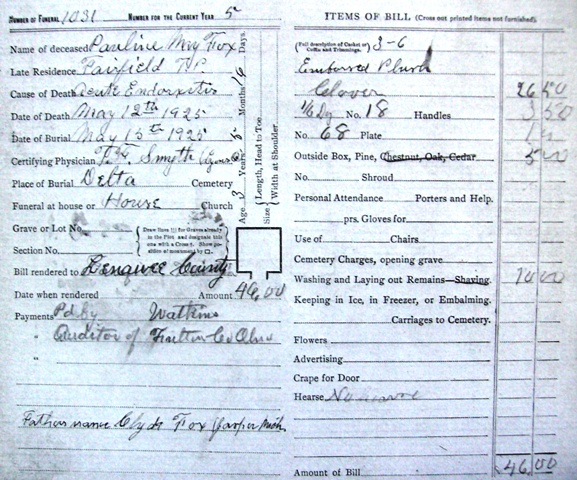 NUMBER OF FUNERAL 1031 NUMBER FOR THE CURRENT YEAR 5
Name of deceased Pauline May Fox
Late Residence Fairfield TP
Cause of Death Acute
Date of Death May 12th 1925
Date of Burial May 15th 1925
Certifying Physician Smyth
Place of Burial Delta Cemetery
Funeral at house or House Church
Grave or Lot No.
Section No.
Draw lines for Graves already in the Plot and designate this one with a Cross. Show position of monument by
Bill rendered to Lenawee County
Date when rendered Amount 46.00
Payments Pd. by Watkins
" Auditor of Fulton Co Ohio
"
Fathers name Clyde Fox Jasper Mich
Age 3 Years Months Days.
Size Length, Head to Toe.
Width at Shoulder.
ITEMS OF BILL (Cross out printed items not furnished)
(Full description of Casket or Coffin and Trimmings. 3-6
Embossed Plush
26 50
No. 18 Handles 3 50
No. 68 Plate
Outside Box, Pine, Chestnut, Oak, Cedar 5 00
No. Shroud
Personal Attendance Porters and Help.
prs. Gloves for
Use of Chairs
Cemetery Charges, opening grave
Washing and Laying out Remains—Shaving. 10 00
Keeping in Ice, in Freezer, or Embalming.
Carriages to Cemetery.
Flowers
Advertising
Crape for Door
Hearse
Amount of Bill 46.00